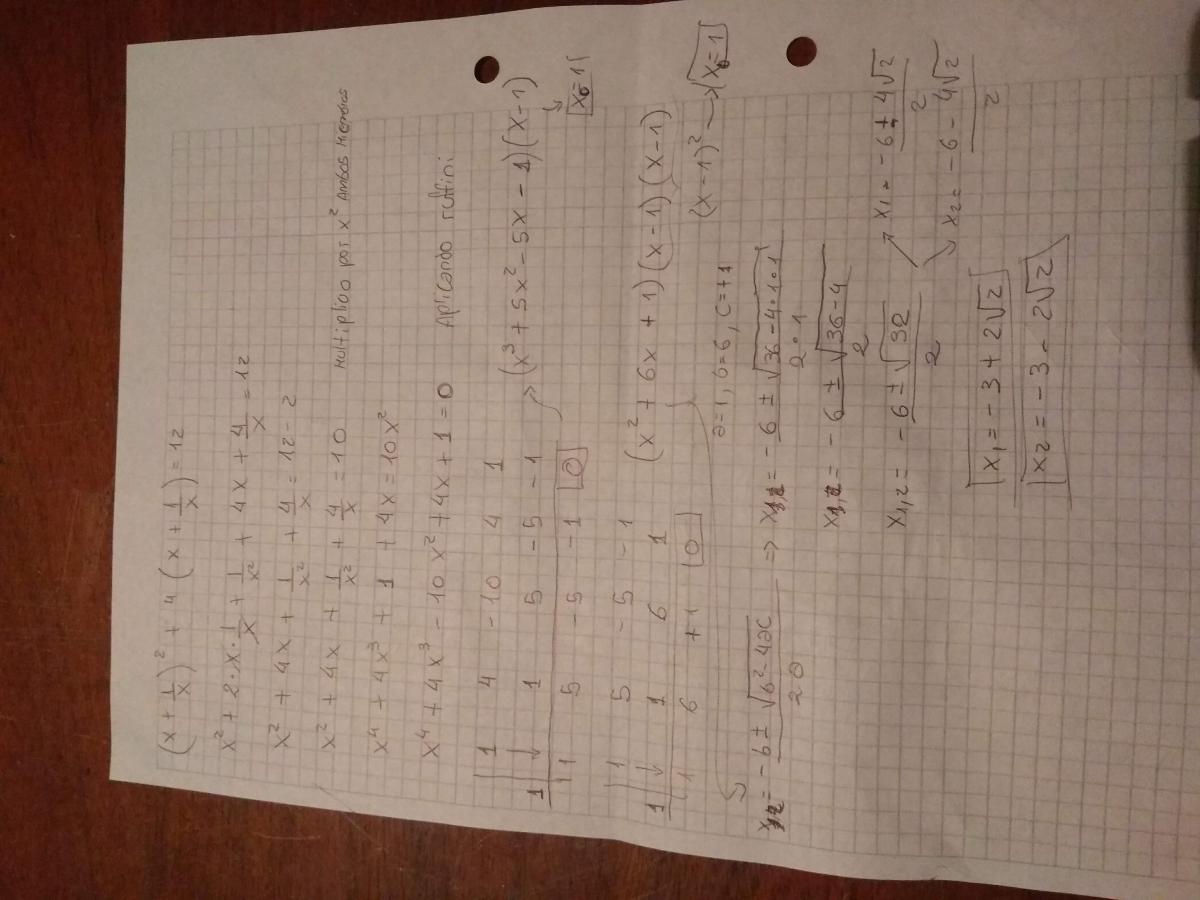 (x + 1/x)² + 4 (x + 1/x) = 12
x² + 2·x·1/x + 1/x² + 4x + 4/x = 12
x² + 4x + 1/x² + 4/x = 12 - 2
x² + 4x + 1/x² + 4/x = 10 Multiplico por x² Ambos Miembros
x⁴ + 4x³ + 1 + 4x = 10x²
x⁴ + 4x³ - 10x² + 4x + 1 = 0 Aplicando ruffini
1 4 -10 4 1
1 ↓ 1 5 -5 -1 → (x³ + 5x² - 5x - 1)(x - 1)
1 5 -5 -1 0 x₀ = 1
1 5 -5 -1
1 ↓ 1 6 1 (x² + 6x + 1)(x - 1)(x - 1)
1 6 +1 0 (x - 1)² → x₀ = 1
a = 1, b = 6, c = +1
x₁,₂ = -b ± √b² - 4ac / 2a ⇒ x₁,₂ = -6 ± √36 - 4·1·1 / 2·1
x₁,₂ = -6 ± √36 - 4 / 2
x₁,₂ = -6 ± √32 / 2 x₁ = -6 + 4√2 / 2
x₂ = -6 - 4√2 / 2
x₁ = -3 + 2√2
x₂ = -3 - 2√2